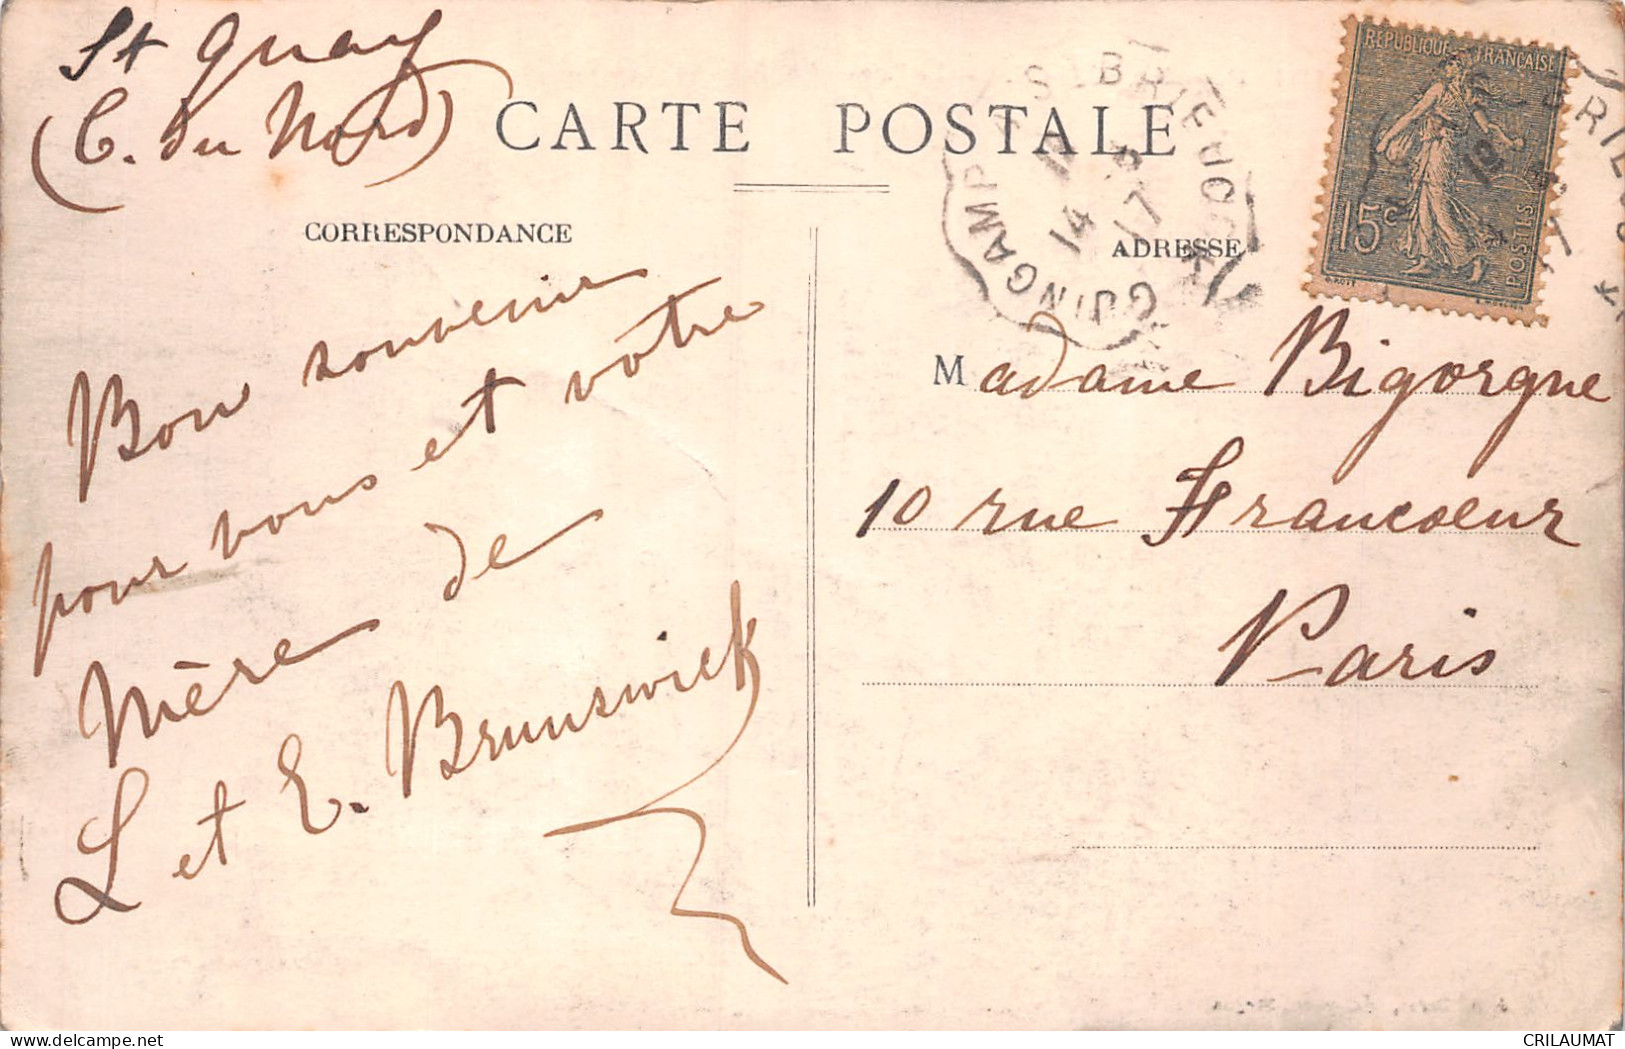 St Quay
(C. du Nord)
CARTE POSTALE
CORRESPONDANCE
ADRESSE
Bon souvenir
pour vous et votre
Mère de
L et E. Brunswick
REPUBLIQUE FRANÇAISE
15c
POSTES
ST BRIEUC
GUINGAMP
14
17
Madame Bigorgne
10 rue Francoeur
Paris
CRILAUMAT